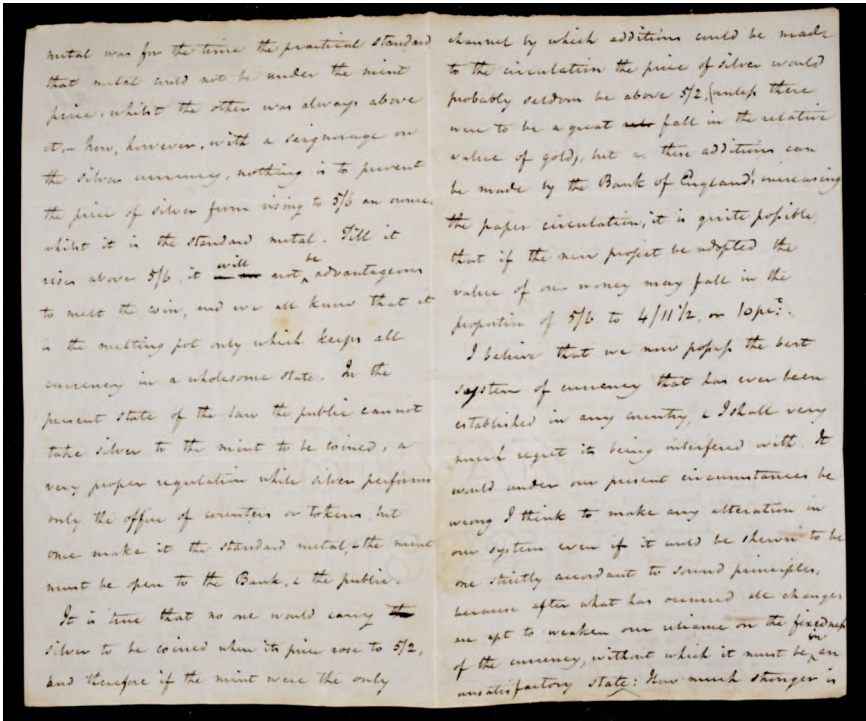 metal was for the time the practical standard
that metal could not be under the mint
price, whilst the other was always above
it,– Now, however, with a seignorage on
the silver currency, nothing is to prevent
the price of silver from rising to 5/6 an ounce
whilst it is the standard metal. Till it
rises above 5/6 it will not be advantageous
to melt the coin, and we all know that it
is the melting pot only which keeps all
currency in a wholesome state. In the
present state of the law the public cannot
take silver to the mint to be coined, a
very proper regulation while silver performs
only the office of counters or tokens but
once make it the standard metal, & the mint
must be open to the Bank, & the public.
It is true that no one would carry the
silver to be coined when its price rose to 5/2,
and therefore if the mint were the only
channel by which additions could be made
to the circulation the price of silver would
probably seldom be above 5/2, (unless there
were to be a great fall in the relative
value of gold), but as these additions can
be made by the Bank of England's increasing
the paper circulation, it is quite possible
that if the new project be adopted the
value of our money may fall in the
proportion of 5/6 to 4/11 1/2, or 10 pct.
I believe that we now possess the best
system of currency that has ever been
established in any country, & I shall very
much regret its being interfered with. It
would under our present circumstances be
wrong I think to make any alteration in
our system even if it could be shewn to be
one strictly accordant to sound principles,
because after what has occurred all changes
are apt to weaken our reliance on the fixedness
of the currency, without which it must be in an
unsatisfactory state: How much stronger is